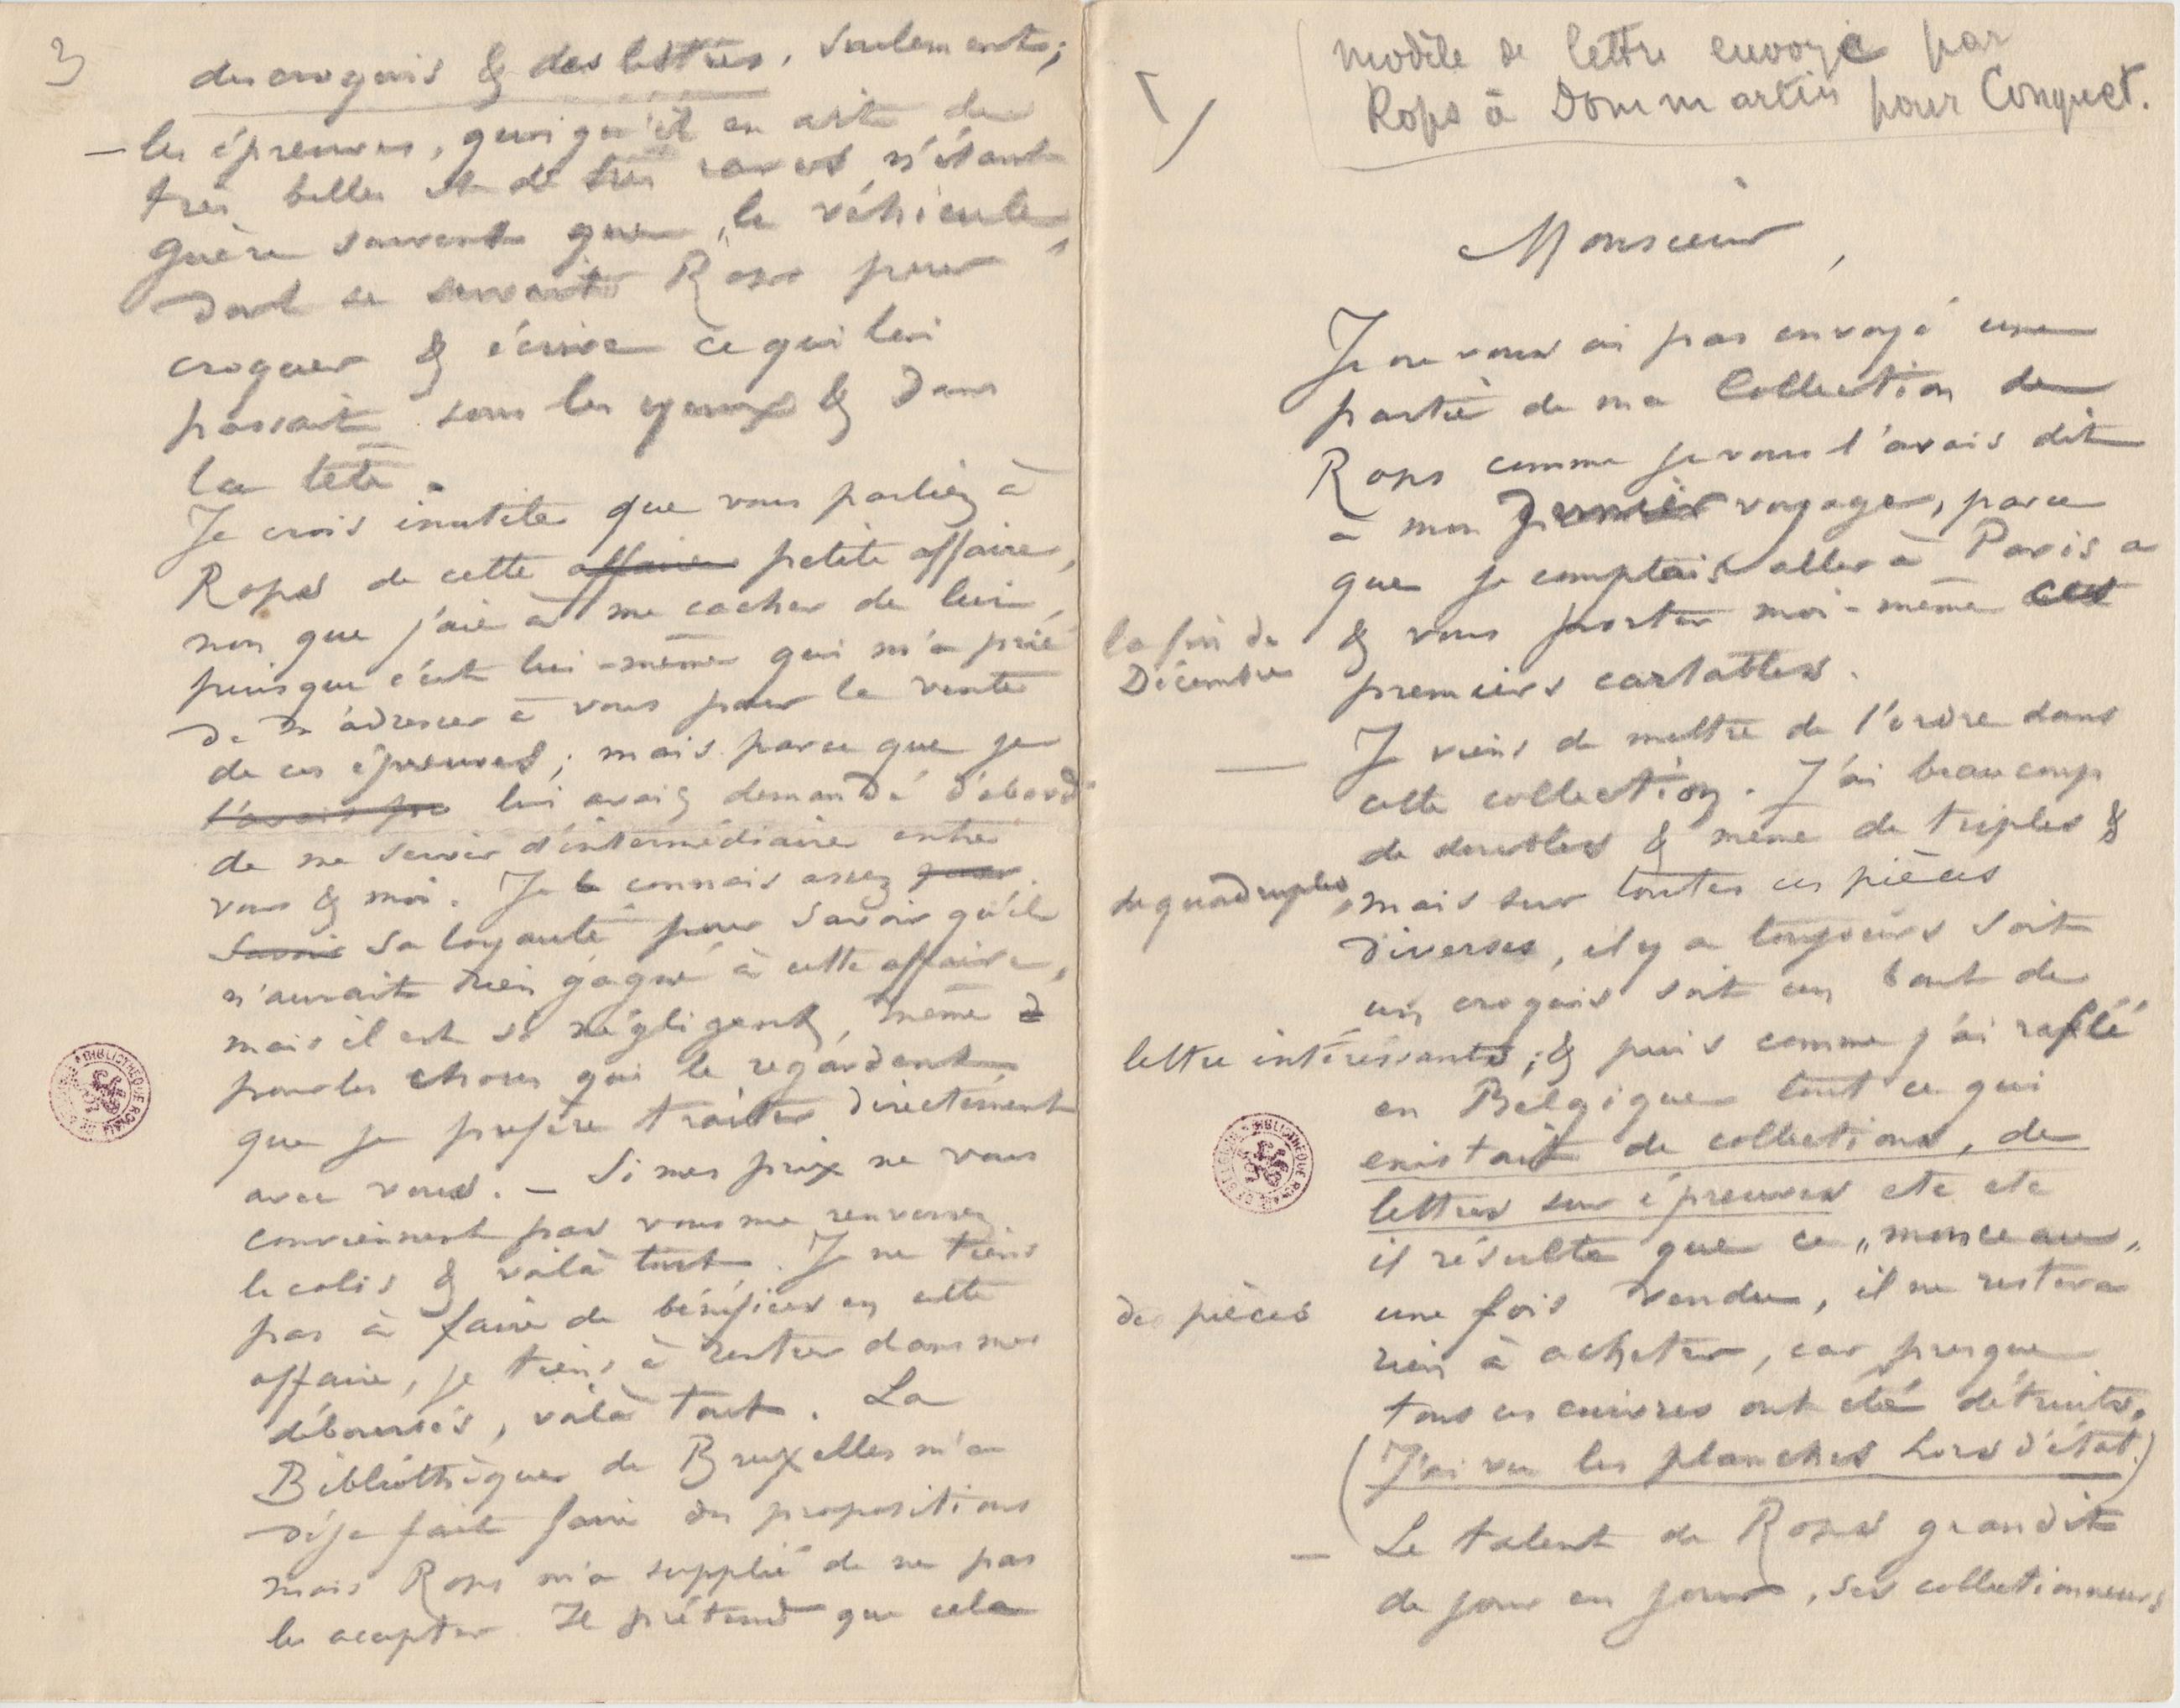 1/
modèle de lettre envoyé par
Rops à Dommartin pour Conquet.
Monsieur,
Je ne vous ai pas envoyé une
partie de ma Collection de
Rops comme je vous l'avais dit
à mon dernier voyage, parce
que je comptais aller à Paris a
la fin de
Décembre
& vous porter moi-même ces
premiers cartables.
— Je viens de mettre de l'ordre dans
cette collection. J'ai beaucoup
de doubles & même de triples &
de quadruples, mais sur toutes ces pièces
diverses, il y a toujours soit
un croquis soit un bout de
lettre intéressante ; & puis comme j'ai raflé
en Belgique tout ce qui
existait de collections, de
lettres sur épreuves etc etc
il résulte que ce „monceau„
des pièces une fois vendu, il ne restera
rien à acheter, car presque
tous ces cuivres ont été détruits.
(J'ai vu les planches hors d'état.)
— Le talent de Rops grandit
de jour en jour, ses collectionneurs
3
des croquis & des lettres, seulement ;
— les épreuves, quoiqu'il en ait de
très belles et de très rares n'étant
guère souvent que „le véhicule„
dont se servait Rops pour
croquer & écrire ce qui lui
passait sous les yeux & dans
la tête.
Je crois inutile que vous parliez à
Rops de cette affaire petite affaire,
non que j'aie à me cacher de lui,
puisque c'est lui-même qui m'a prié
de m'adresser à vous pour la vente
de ces épreuves ; mais parce que je
l'avais pr lui avais demandé d'abord
de me servir d'intermédiaire entre
vous & moi. Je le connais assez pour
savoir sa loyauté pour savoir qu'il
n'aurait rien gagné à cette affaire,
mais il est si négligent, même d
pour les choses qui le regardent
que je préfère traiter directement
avec vous. — Si mes prix ne vous
conviennent pas vous me renverrez
le colis & voilà tout. Je ne tiens
pas à faire de bénéfices en cette
affaire, je tiens à rentrer dans mes
déboursés, voilà tout. La
Bibliothèque de Bruxelles m'a
déjà fait faire des propositions
mais Rops m'a supplié de ne pas
les accepter. Il prétend que cela